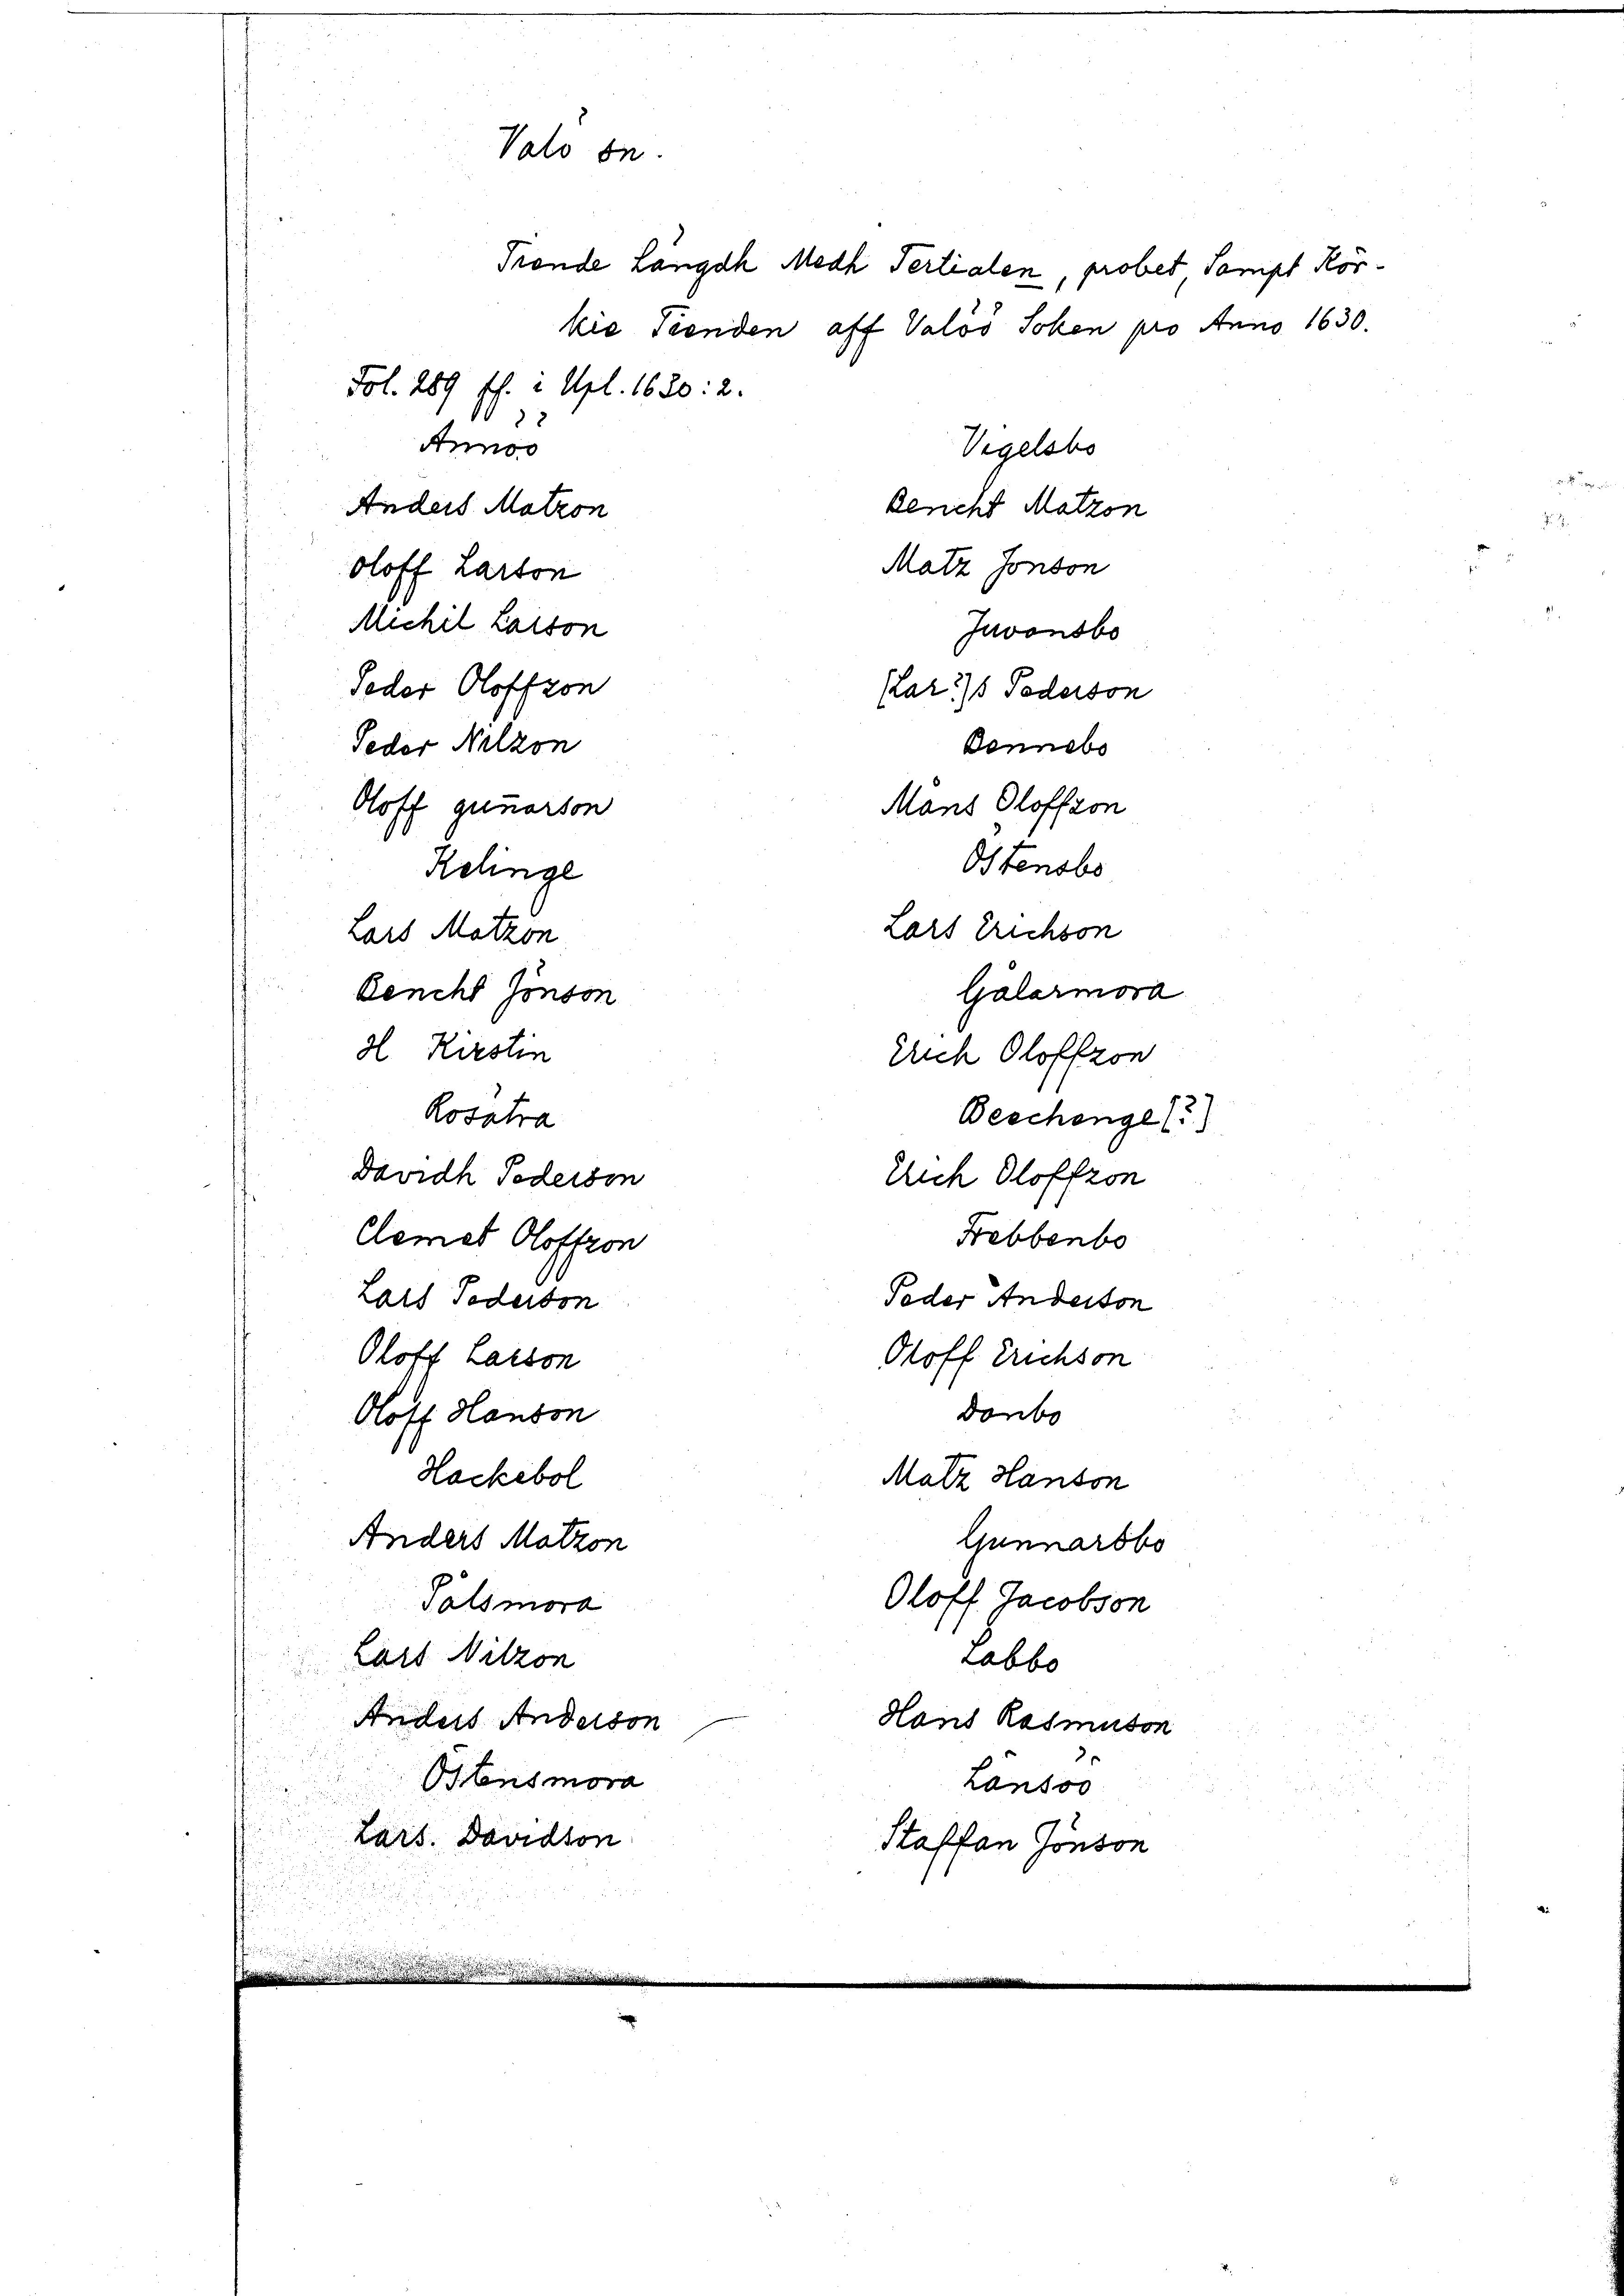 Valö sn.
Tiende Längdh Medh Tertialen, probet, Sampt Kör-
kie Tienden aff Valöö Soken pro Anno 1630.
Fol. 289 ff. i Upl. 1630:2.
Annöö
Anders Matzon
Oloff Larson
Michil Larson
Peder Oloffzon
Peder Nilzon
Oloff guñarson
Kelinge
Lars Matzon
Bencht Jönson
H Kirstin
Rosätra
Davidh Pederson
Clemet Oloffzon
Lars Pederson
Oloff Larson
Oloff Hanson
Hackebol
Anders Matzon
Pålsmora
Lars Nilzon
Anders Anderson
Östensmora
Lars. Davidson
Vigelsbo
Bencht Matzon
Matz Jonson
Juvansbo
(Lar?)s Pederson
Bennebo
Måns Oloffzon
Östensbo
Lars Erichson
Gålarmora
Erich Oloffzon
Beschenge (?)
Erich Oloffzon
Frebbenbo
Peder Anderson
Oloff Erichson
Danbo
Matz Hanson
Gunnarsbo
Oloff Jacobson
Labbo
Hans Rasmuson
Länsöö
Staffan Jönson